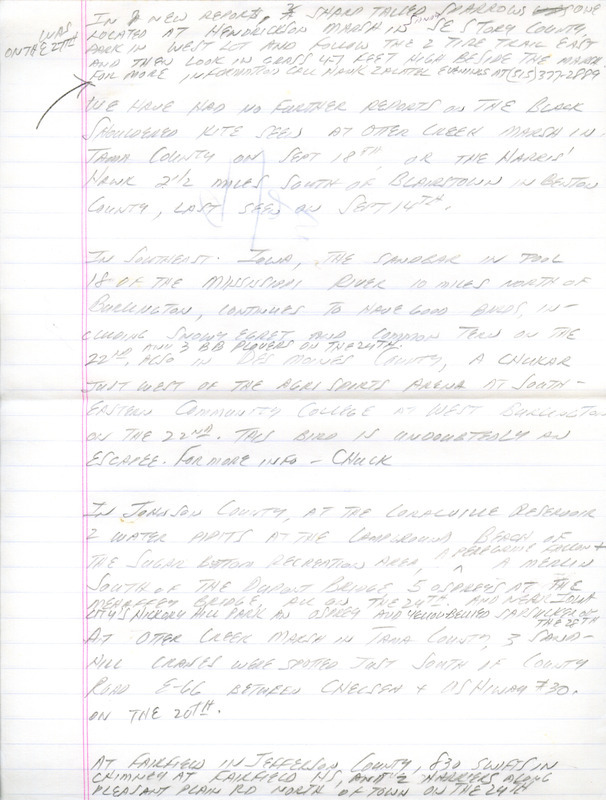 IN A NEW REPORT, SHARP TAILED SPARROWS
WAS ONE
ON THE 27TH
LOCATED AT HENDRICKSON MARSH IN SE STORY COUNTY,
PARK IN WEST LOT AND FOLLOW THE 2 TIRE TRAIL EAST
AND THEN LOOK IN GRASS 4-7 FEET HIGH BESIDE THE MARSH.
FOR MORE INFORMATION CALL HANK ZALETEL EVENINGS AT (515) 377-2889
WE HAVE HAD NO FURTHER REPORTS ON THE BLACK
SHOULDERED KITE SEEN AT OTTER CREEK MARSH IN
TAMA COUNTY ON SEPT 18TH, OR THE HARRIS'
HAWK 2 1/2 MILES SOUTH OF BLAIRSTOWN IN BENTON
COUNTY, LAST SEEN ON SEPT 14TH.
IN SOUTHEAST IOWA, THE SANDBAR IN POOL
18 OF THE MISSISSIPPI RIVER 10 MILES NORTH OF
BURLINGTON, CONTINUES TO HAVE GOOD BIRDS, IN-
CLUDING SNOWY EGRET AND COMMON TERN ON THE
22ND, AND 3 BB PLOVERS ON THE 24TH.
ALSO IN DES MOINES COUNTY, A CHUKAR
JUST WEST OF THE AGRI SPORTS ARENA AT SOUTH-
EASTERN COMMUNITY COLLEGE AT WEST BURLINGTON
ON THE 22ND. THIS BIRD IS UNDOUBTEDLY AN
ESCAPEE. FOR MORE INFO - CHUCK
IN JOHNSON COUNTY, AT THE CORALVILLE RESERVOIR
2 WATER PIPITS AT THE CAMPGROUND BEACH OF
THE SUGAR BOTTOM RECREATION AREA, A PEREGRINE FALCON + A MERLIN
SOUTH OF THE DUPONT BRIDGE, 5 OSPREYS AT THE
MEHAFFEY BRIDGE ALL ON THE 24TH. AND NEAR IOWA
CITY'S HICKORY HILL PARK AN OSPREY AND YELLOWBELLIED SAPSUCKER ON
THE 28TH
AT OTTER CREEK MARSH IN TAMA COUNTY, 3 SAND-
HILL CRANES WERE SPOTTED JUST SOUTH OF COUNTY
ROAD E-66 BETWEEN CHELSEA + US HIWAY #30.
ON THE 20TH.
AT FAIRFIELD IN JEFFERSON COUNTY, 830 SWIFTS IN
CHIMNEY AT FAIRFIELD HS, AND 2 HARRIERS ALONG
PLEASANT PLAIN RD NORTH OF TOWN ON THE 24TH